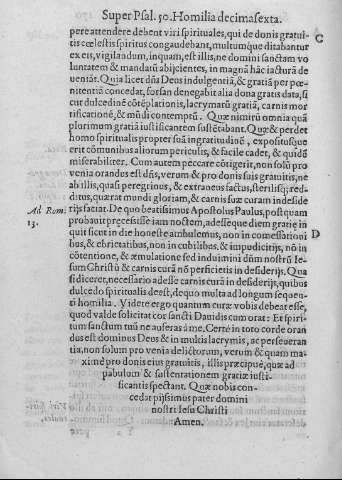 Super Psal. 50. Homilia decimasexta.
pere attendere debent viri spirituales, qui de donis gratui-
tis cœlestis spiritus congaudebant, multumque ditabantur
ex eis, vigilandum, inquam, est illis, ne domini sanctam vo
luntatem & mandatũ abijcientes, in magnã hãc iacturã de
C
ueniãt. Quia licet dñs Deus indulgentiã, & gratiã per pœ-
nitentiã concedat, forsan denegabit alia dona gratis data, si
cut dulcedinẽ cõtẽplationis, lacrymarũ gratiã, carnis mor
tificationẽ, & mũdi contemptũ. Quæ nimirũ omnia quã
plurimum gratiã iustificantem sustẽtabant. Quæ & perdet
homo spiritualis propter suã ingratitudinẽ, expositusque
erit cõmunibus aliorum periculis, & facile cadet, & quidẽ
miserabiliter. Cum autem peccare cõtigerit, non solũ pro
venia orandus est dñs, verum & pro donis suis gratuitis, ne
ab illis, quasi peregrinus, & extraneus factus, sterilisq; red-
ditus, quærat mundi gloriam, & carnis suæ curam in deside
rijs faciat. De quo beatissimus Apostolus Paulus, postquam
Ad Rom.
13.
probauit præcessisse iam noctem, adesseque diem gratiæ in
quit sicut in die honeste ambulemus, non in comessationi
D
bus, & ebrietatibus, non in cubilibus, & impudicitijs, nõ in
cõtentione, & æmulatione sed induimini dñm nostrũ Ie-
sum Christũ & carnis curã nõ perficietis in desiderijs. Qua
si diceret, necessario adesse carnis curã in desiderijs, quibus
dulcedo spiritualis deest, de quo multa ad longum sequen-
ti homilia. Videte ergo quantum curæ vobis debeat esse,
quod valde solicitat cor sancti Dauidis cum orat: Et spiri-
tum sanctum tuũ ne auferas à me. Certe in toto corde oran
dus est dominus Deus & in multis lacrymis, ac perseueran
tia, non solum pro venia delictorum, verum & quam ma-
ximè pro donis eius gratuitis, illis præcipuè, quæ ad
pabulum & sustentationem gratiæ iusti-
ficantis spectant. Quæ nobis con-
cedat pijssimus pater domini
nostri Iesu Christi
Amen.